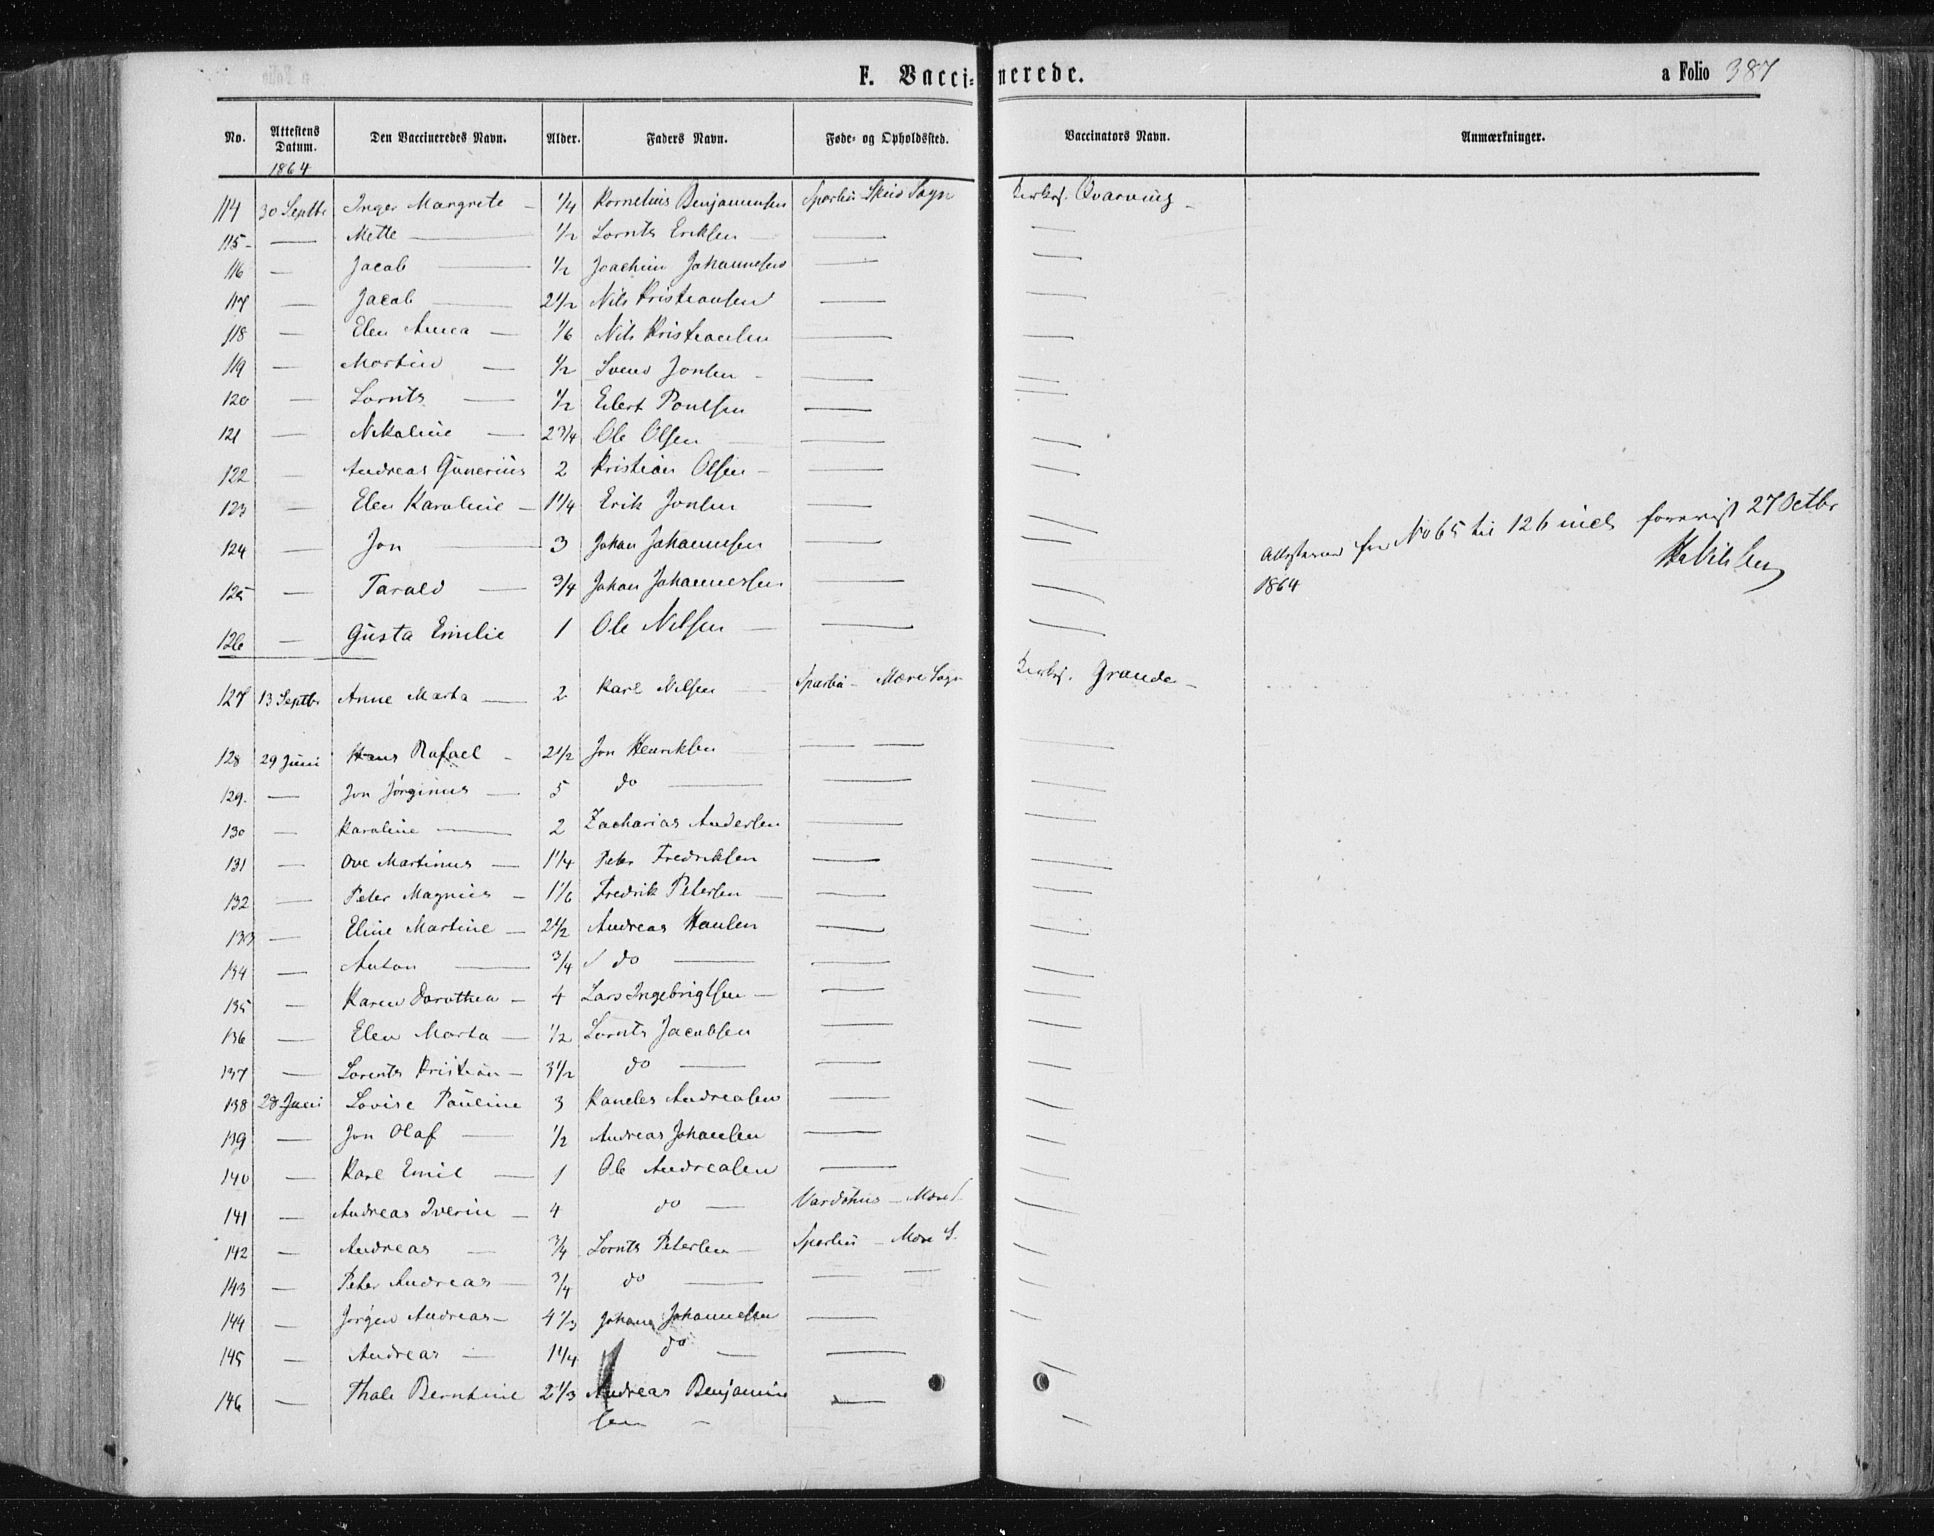 F. Vaccinerede.
a Folio 387
No. Attestens Datum. Den Vaccineredes Navn. Alder. Faders Navn. Føde- og Opholdssted. Vaccinators Navn. Anmærkninger.
1864
114 30 Septbr Inger Margrete - 1/4 Kornelius Benjaminsen Sparbu Skeis Sogn Kirkes. Qvarving -
115 - — Mette — 1/2 Lornts Eriksen — — —
116 — Jacob — 1/2 Joachim Johannesen — —
117 — Jacob — 2 1/2 Nils Kristiansen — —
118 — Elen Anna — 1/6 Nils Kristiansen — —
119 — Martin — 1/2 Svend Jonsen - — —
120 — Lornts — 1/2 Eilert Poulsen — —
121 — Nikoline — 2 3/4 Ole Olsen — — —
122 — Andreas Gunerius 2 Kristian Olsen - — —
123 — Elen Karoline - 1 1/4 Erik Jonsen — —
124 — Jon — 3 Johan Johannesen — —
125 — Tarald — 3/4 Johan Johannessen — —
126 — Gusta Emilie 1 Ole Nilsen — — —
Attesterne for No 65 til 126 incl. forevist 27 Octbr
1864
127 13 Septbr Anne Marta — 2 Karl Nilsen — Sparbu - Mære Sogn Kirkes. Grande -
128 29 Juni Hans Rafael - 2 1/2 Jon Henriksen — — — —
129. — Jon Jørginus — 5 do — — —
130 — Karoline — 2 Zacharias Andersen — —
131 — Ove Martinus — 1 1/4 Peter Fredriksen — —
132 — Peter Magnus - 1 1/6 Fredrik Petersen — — —
133 — Eline Martine — 2 1/2 Andreas Hansen — —
134 — Anton — 3/4 do — — —
135 — Karen Dorothea - 4 Lars Ingebrigtsen — — —
136 — Elen Marta — 1/2 Lornts Jacobsen — —
137 — Lorents Kristian - 3 1/2 do — — —
138 28 Juni Lovise Pauline 3 Andreasen — —
139 — Jon Olaf — 1/2 Andreas Johansen — —
140 — Karl Emil — 1 Ole Andreasen — —
141 — Andreas Iverin - 4 do — Vardøhus - Mære S. —
142 — Andreas — 3/4 Lornts Petersen — Sparbu - Mære S. —
143 — Peter Andreas — 3/4 do — — — —
144 — Jørgen Andreas - 4 1/3 Johan Johannesen — —
145 — Andreas — 1 1/4 do — — —
146 — Thale Berntine 2 1/3 Andreas Benjamin — —
sen -